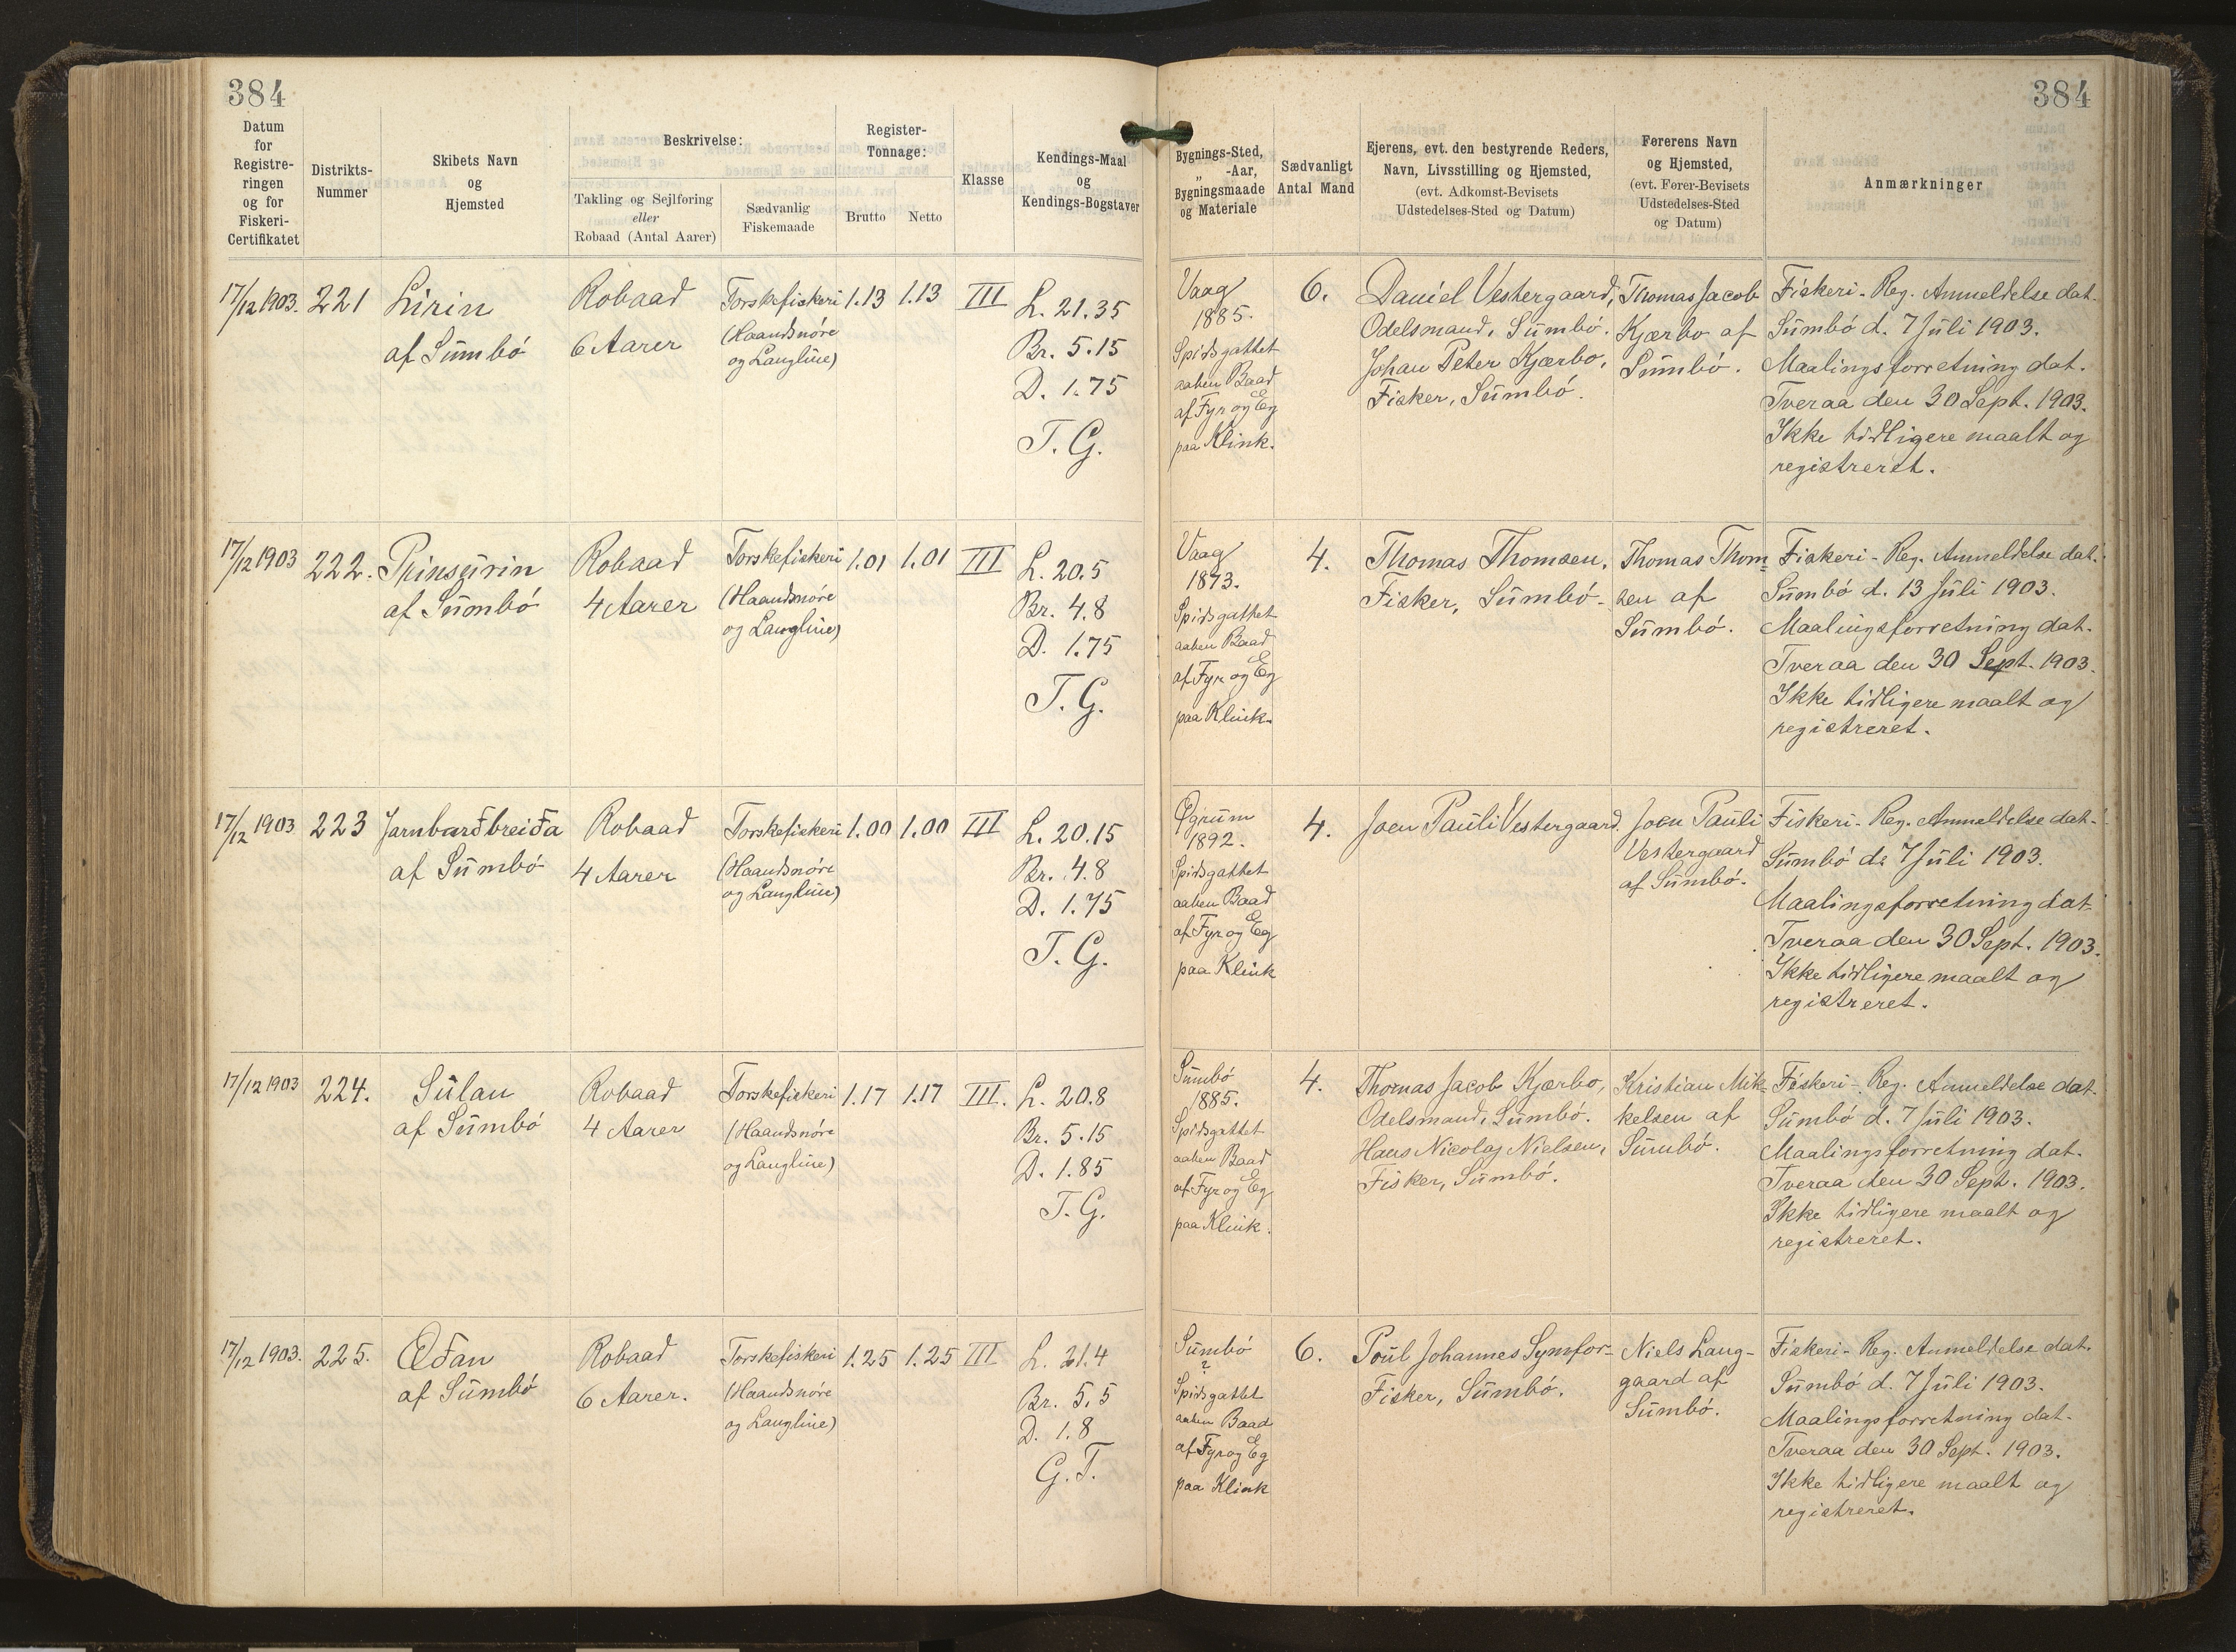 384
384
Datum
for
Registre-
ringen
og for
Fiskeri-
Certifikatet
Distrikts-
Nummer
Skibets Navn
og
Hjemsted
Beskrivelse:
Takling og Sejlføring
eller
Robaad (Antal Aarer)
Sædvanlig
Fiskemaade
Register-
Tonnage:
Brutto
Netto
Klasse
Kendings-Maal
og
Kendings-Bogstaver
Bygnings-Sted,
„ -Aar,
Bygningsmaade
og Materiale
Sædvanligt
Antal Mand
Ejerens, evt. den bestyrende Reders,
Navn, Livsstilling og Hjemsted,
(evt. Adkomst-Bevisets
Udstedelses-Sted og Datum)
Førerens Navn
og Hjemsted,
(evt. Fører-Bevisets
Udstedelses-Sted
og Datum)
Anmærkninger
17/12 1903.
221
Lirin
af Sumbö
Robaad
6 Aarer
Torskefiskeri
(Haandsnöre
og Langline)
1.13
1.13
III
L. 21.35
Br. 5.15
D. 1.75
T. G.
Vaag
1885.
Spidsgattet
aaben Baad
af Fyr og Eg
paa Klink.
6.
Daniel Vestergaard,
Odelsmand, Sumbö.
Johan Peter Kjærbo,
Fisker, Sumbö.
Thomas Jacob
Kjærbo af
Sumbö.
Fiskeri-Reg. Anmeldelse dat.
Sumbö d. 7 Juli 1903.
Maalingsforretning dat.
Tveraa den 30 Sept. 1903.
Ikke tidligere maalt og
registreret.
17/12 1903
222.
Prinsurin
af Sumbö
Robaad
4 Aarer
Torskefiskeri
(Haandsnöre
og Langline)
1.01
1.01
III
L. 20.5
Br. 4.8
D. 1.75
T. G.
Vaag
1873.
Spidsgattet
aaben Baad
af Fyr og Eg
paa Klink.
4.
Thomas Thomsen,
Fisker, Sumbö.
Thomas Thom-
sen af
Sumbö.
Fiskeri-Reg. Anmeldelse dat.
Sumbö d. 13 Juli 1903.
Maalingsforretning dat.
Tveraa den 30 Sept. 1903.
Ikke tidligere maalt og
registreret.
17/12 1903
223
Jarnbarðbreiða
af Sumbö
Robaad
4 Aarer
Torskefiskeri
(Haandsnöre
og Langline)
1.00
1.00
III
L. 20.15
Br. 4.8
D. 1.75
T. G.
1892.
Spidsgattet
aaben Baad
af Fyr og Eg
paa Klink
4.
Joen Pauli Vestergaard.
Joen Pauli
Vestergaard
af Sumbö.
Fiskeri-Reg. Anmeldelse dat.
Sumbö d. 7 Juli 1903.
Maalingsforretning dat.
Tveraa den 30 Sept. 1903.
Ikke tidligere maalt og
registreret.
17/12 1903
224.
Sulan
af Sumbö
Robaad
4 Aarer
Torskefiskeri
(Haandsnöre
og Langline)
1.17
1.17
III.
L. 20.8
Br. 5.15
D. 1.85
T. G.
Sumbö
1885.
Spidsgattet
aaben Baad
af Fyr og Eg
paa Klink.
4.
Thomas Jacob Kjærbo,
Odelsmand, Sumbö.
Hans Nicolaj Nielsen,
Fisker, Sumbö.
Kristian Mik-
kelsen af
Sumbö.
Fiskeri-Reg. Anmeldelse dat.
Sumbö d. 7 Juli 1903.
Maalingsforretning dat.
Tveraa den 30 Sept. 1903.
Ikke tidligere maalt og
registreret.
17/12 1903.
225.
Æðan
af Sumbö
Robaad
6 Aarer.
Torskefiskeri
(Haandsnöre
og Langline)
1.25
1.25
III
L. 21.4
Br. 5.5
D. 1.8
G. T.
Sumbö
?
Spidsgattet
aaben Baad
af Fyr og Eg
paa Klink
6.
Poul Johannes Symfor-
Fisker, Sumbö.
Niels Lang-
gaard af
Sumbö.
Fiskeri-Reg. Anmeldelse dat.
Sumbö d. 7 Juli 1903.
Maalingsforretning dat.
Tveraa den 30 Sept. 1903.
Ikke tidligere maalt og
registreret.